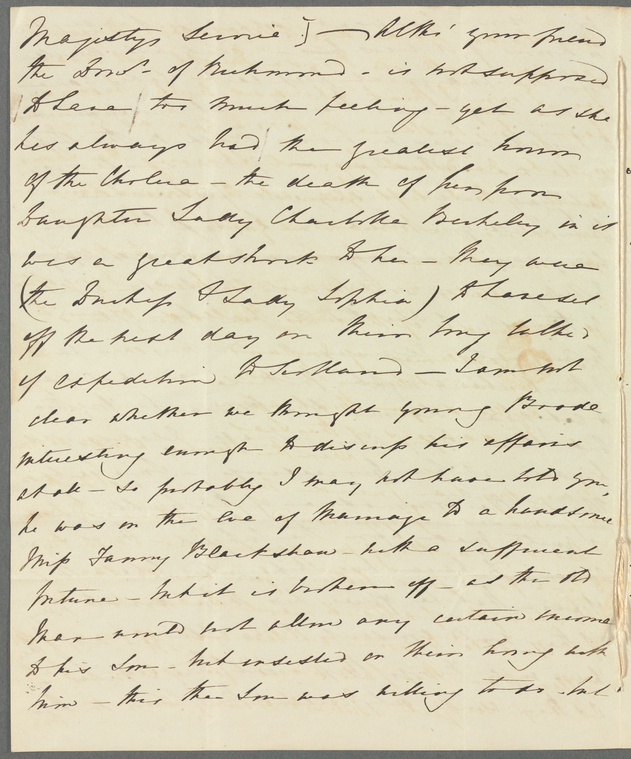 Majestys Service] — Altho' your friend
the Dow.r of Richmond - is not supposed
to have too much feeling - yet as she
has always had the greatest horror
of the Cholera - the death of her poor
Daughter Lady Charlotte Berkeley in it
was a great shock to her - They were
(the Duchess & Lady Sophia) to have set
off the next day on their long talked
of expedition to Scotland — I am not
clear whether we thought young Brode
interesting enough to discuss his affairs
at all - so probably I may not have told you,
he was on the Eve of Marriage to a handsome
Miss Fanny Blackshaw - with a sufficient
fortune - but it is broken off - as the old
Man would not allow any certain income
to his Son - but insisted on their living with
him - this the Son was willing to do - but